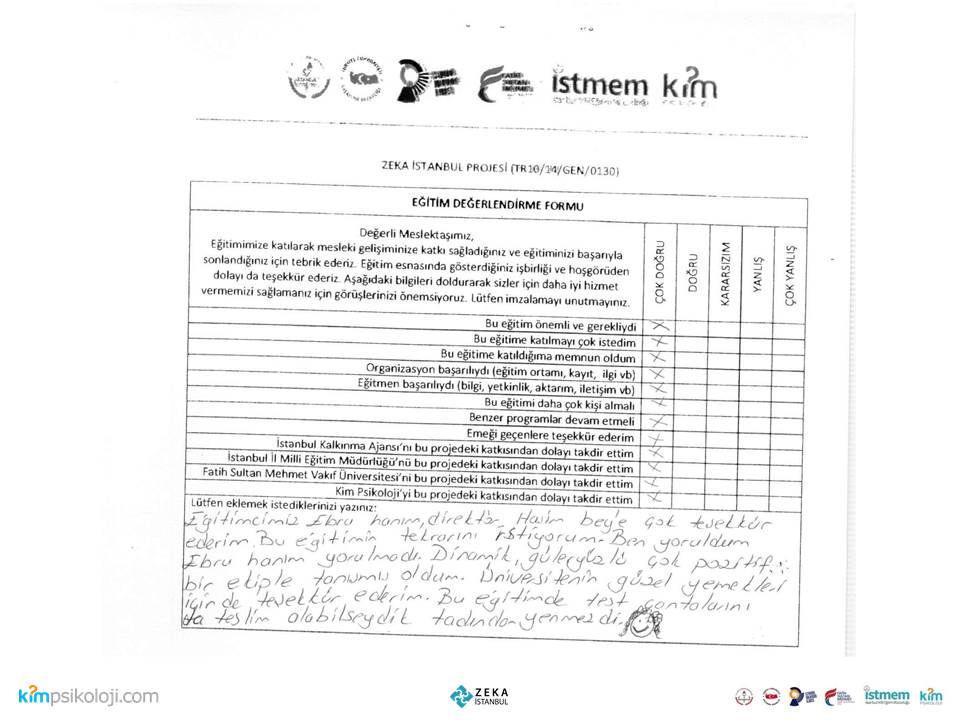 istmem kim
ZEKA İSTANBUL PROJESİ (TR10/14/GEN/0130)
EĞİTİM DEĞERLENDİRME FORMU
Değerli Meslektaşımız,
Eğitimimize katılarak mesleki gelişiminize katkı sağladığınız ve eğitiminizi başarıyla
sonlandığınız için tebrik ederiz. Eğitim esnasında gösterdiğiniz işbirliği ve hoşgörüden
dolayı da teşekkür ederiz. Aşağıdaki bilgileri doldurarak sizler için daha iyi hizmet
vermemizi sağlamanız için görüşlerinizi önemsiyoruz. Lütfen imzalamayı unutmayınız.
ÇOK DOĞRU
DOĞRU
KARARSIZIM
YANLIŞ
ÇOK YANLIŞ
Bu eğitim önemli ve gerekliydi
Bu eğitime katılmayı çok istedim
Bu eğitime katıldığıma memnun oldum
Organizasyon başarılıydı (eğitim ortamı, kayıt, ilgi vb)
Eğitmen başarılıydı (bilgi, yetkinlik, aktarım, iletişim vb)
Bu eğitimi daha çok kişi almalı
Benzer programlar devam etmeli
Emeği geçenlere teşekkür ederim
İstanbul Kalkınma Ajansı'nı bu projedeki katkısından dolayı takdir ettim
İstanbul İl Milli Eğitim Müdürlüğü'nü bu projedeki katkısından dolayı takdir ettim
Fatih Sultan Mehmet Vakıf Üniversitesi'ni bu projedeki katkısından dolayı takdir ettim
Kim Psikoloji'yi bu projedeki katkısından dolayı takdir ettim
Lütfen eklemek istediklerinizi yazınız:
Eğitimcimiz Ebru hanım, direktör Hasim bey'e çok teşekkür
ederim. Bu eğitimin tekrarını istiyorum. Ben yoruldum
Ebru hanım yorulmadı. Dinamik, güleryüzlü çok pozitif
bir ekiple tanışmış oldum. Üniversitenin güzel yemekleri
için de teşekkür ederim. Bu eğitimde test çantalarını
da teslim alabilseydik tadından yenmezdi.
kimpsikoloji.com
ZEKA
İSTANBUL
istmem
kim
PSİKOLOJİ